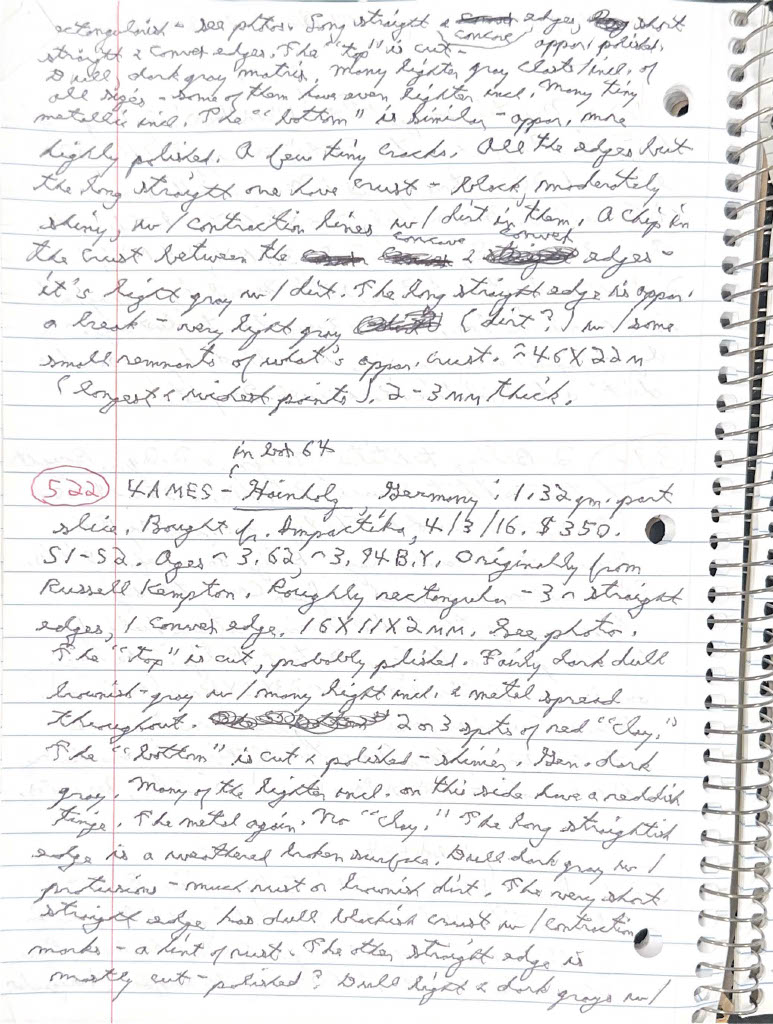 ectangularish - see photos. Long straight & concave edges, short
straight & convex edges. The "top" is cut - appar. polished.
Dull dark gray matrix, many lighter gray clasts/incl. of
all sizes - some of them have even lighter incl. Many tiny
metallic incl. The "bottom" is similar - appar. more
highly polished. A few tiny cracks. All the edges but
the long straight one have crust - black, moderately
shiny, w/ contraction lines w/ dirt in them. A chip in
the crust between the concave & convex edges -
it's light gray w/ dirt. The long straight edge is appar.
a break - very light gray (dirt?) w/ some
small remnants of what's appar. crust. ~46X22m
(longest & widest points). 2-3mm thick.
in box 64
522 4AMES - Hainholz, Germony: 1.32gm. part
slice. Bought f. Impactika, 4/3/16. $350.
S1-S2. Ages ~3.62, ~3.94 B.Y. Originally from
Russell Kempton. Roughly rectangular - 3 ~ straight
edges, 1 convex edge. 16X11X2mm. See photo.
The "top" is cut, probably polished. Fairly dark dull
brownish-gray w/ many light incl. & metal spread
throughout. 2 or 3 spots of red "clay."
The "bottom" is cut & polished - shinier. Gen. dark
gray. Many of the lighter incl. on this side have a reddish
tinge. The metal again. No "clay." The long straightish
edge is a weathered broken surface. Dull dark gray w/
protusions - much rust or brownish dirt. The very short
straight edge has dull blackish crust w/ contraction
marks - a hint of rust. The other straight edge is
mostly cut - polished? Dull light & dark grays w/